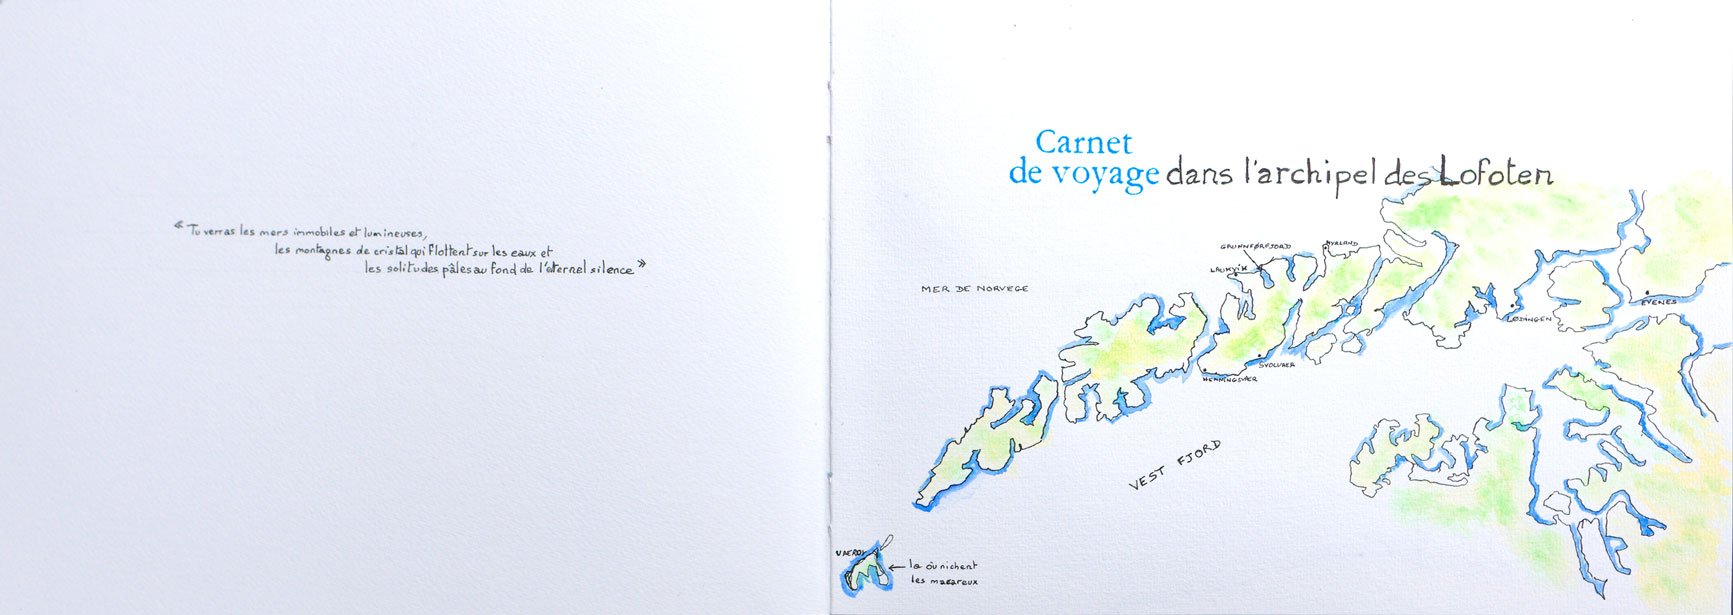 « Tu verras les mers immobiles et lumineuses,
les montagnes de cristal qui flottent sur les eaux et
les solitudes pâles au fond de l'éternel silence »
Carnet
de voyage dans l'archipel des Lofoten
GRUNNFØRFJORD
MYRLAND
LAUKVIK
MER DE NORVEGE
EVENES
LØDINGEN
SVOLVAER
HENNINGSVAER
VEST FJORD
VAEROY
← là où nichent
les macareux